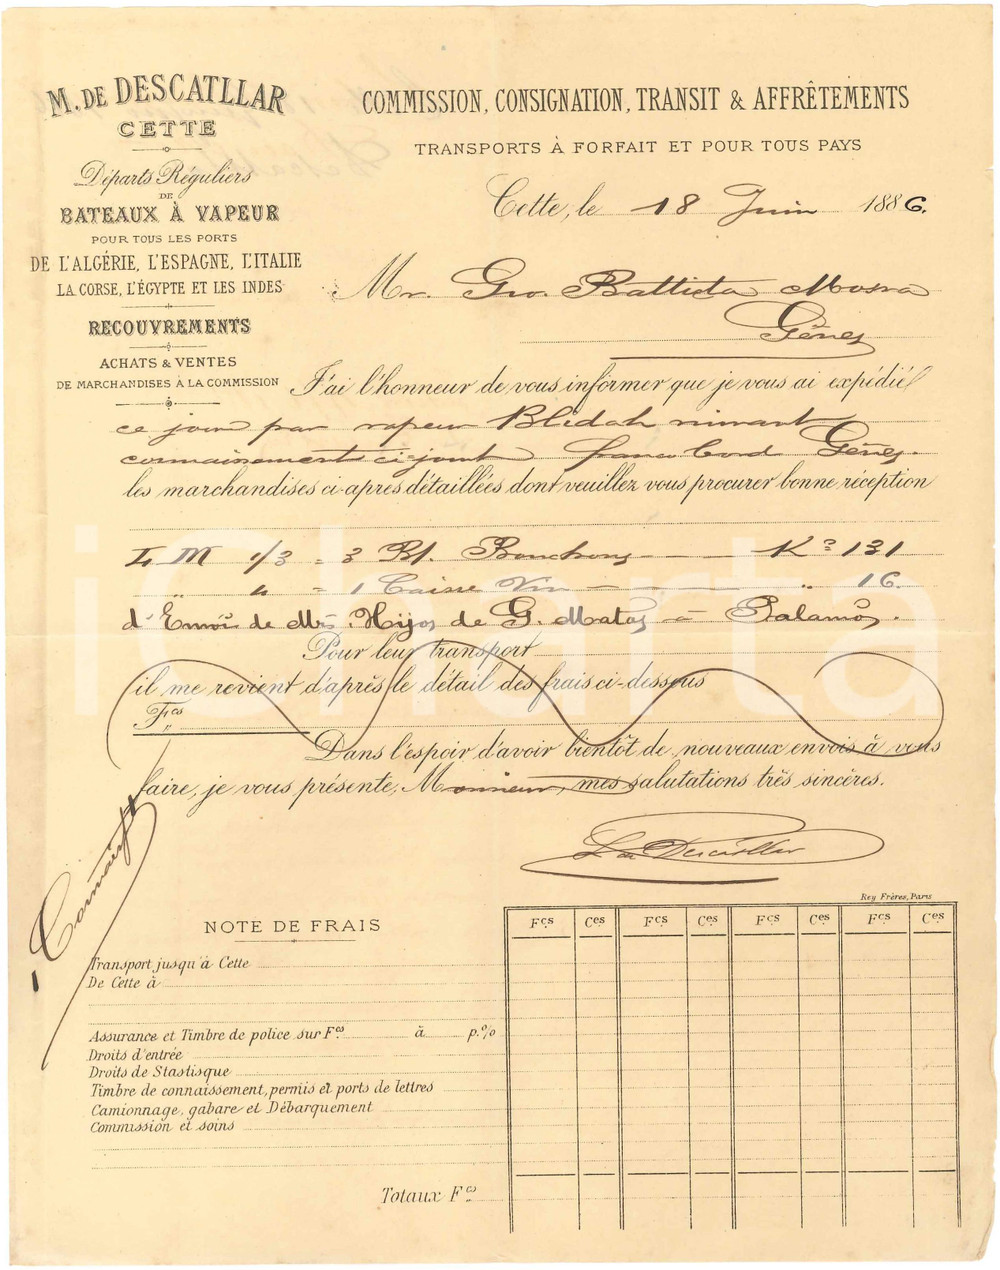 M. DE DESCATLLAR
CETTE
Départs Réguliers
DE
BATEAUX À VAPEUR
POUR TOUS LES PORTS
DE L'ALGÉRIE, L'ESPAGNE, L'ITALIE
LA CORSE, L'ÉGYPTE ET LES INDES
RECOUVREMENTS
ACHATS & VENTES
DE MARCHANDISES À LA COMMISSION
COMMISSION, CONSIGNATION, TRANSIT & AFFRÊTEMENTS
TRANSPORTS À FORFAIT ET POUR TOUS PAYS
Cette, le 18 Juin 1886.
Mr. Gio. Battista Mosra
Gênes
J'ai l'honneur de vous informer que je vous ai expédié
ce jour par vapeur Blidah suivant
connaissement ci-joint franco bord Gênes.
les marchandises ci-après détaillées dont veuillez vous procurer bonne réception
M 1/3 = 3 Bl. Bouchons — — K° 131
" " = 1 Caisse Vin — — " 16.
d'Envoi de Mrs. Hijos de G. Matas à Palamós.
Pour leur transport
il me revient d'après le détail des frais ci-dessous
Fcs "
Dans l'espoir d'avoir bientôt de nouveaux envois à vous
faire, je vous présente, Monsieur, mes salutations très sincères.
Descatllar
1 Connaisst
Rey Frères, Paris
NOTE DE FRAIS
Fcs Ces Fcs Ces Fcs Ces Fcs Ces
Transport jusqu'à Cette
De Cette à
Assurance et Timbre de police sur Fcs à p.%
Droits d'entrée
Droits de Stastisque
Timbre de connaissement, permis et ports de lettres
Camionnage, gabare et Débarquement
Commission et soins
Totaux Fcs
iCharta